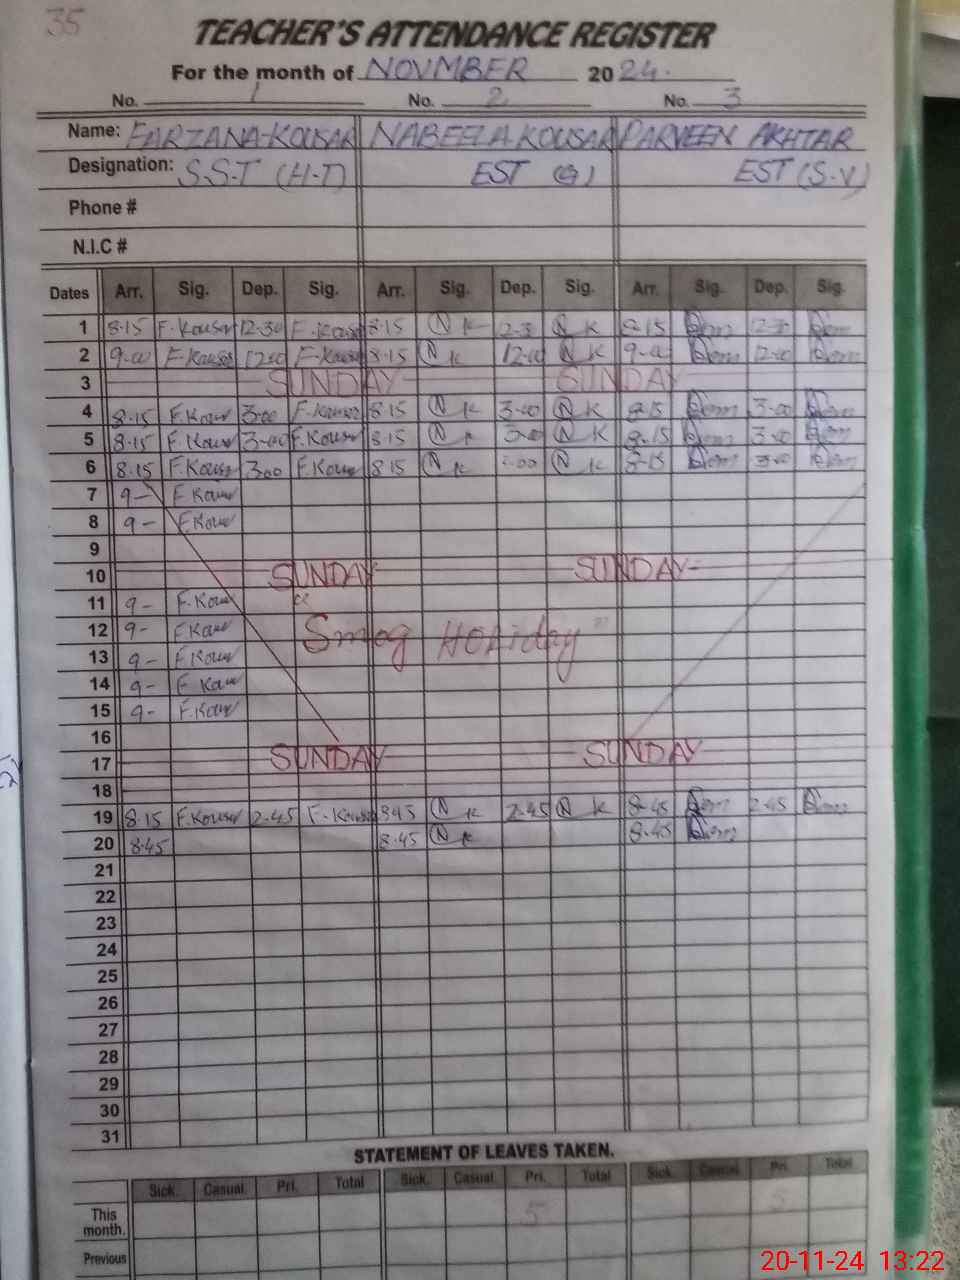 35
TEACHER'S ATTENDANCE REGISTER
For the month of NOVMBER 2024.
No. 1 No. 2 No. 3
Name: FARZANA-KOUSAR NABEELA KOUSAR PARVEEN AKHTAR
Designation: S.S.T (H-T) EST (G) EST (S-V)
Phone #
N.I.C #
Dates Arr. Sig. Dep. Sig. Arr. Sig. Dep. Sig. Arr. Sig. Dep. Sig.
1 8-15 F.Kousar 12-30 F.Kousar 8-15 N K 12-30 N K 8-15 12-30
2 9-00 F-Kousar 12-00 F-Kousar 8-15 N K 12-00 N K 9-00 12-00
3 SUNDAY SUNDAY
4 8-15 F.Kousar 3-00 F.Kousar 8-15 N K 3-00 N K 8-15 3-00
5 8-15 F.Kousar 3-00 F.Kousar 8-15 N K 3-00 N K 8-15 3-00
6 8-15 F.Kousar 3-00 F.Kousar 8-15 N K 3-00 N K 8-15 3-00
7 9- F.Kousar
8 9- F.Kousar
9
10 SUNDAY SUNDAY
11 9- F.Kousar
12 9- F.Kousar "Smog Holiday"
13 9- F.Kousar
14 9- F.Kousar
15 9- F.Kousar
16
17 SUNDAY SUNDAY
18
19 8-15 F.Kousar 2-45 F.Kousar 8-45 N K 2-45 N K 8-45 2-45
20 8-45 8-45 N K 8-45
21
22
23
24
25
26
27
28
29
30
31
STATEMENT OF LEAVES TAKEN.
Sick. Casual. Pri. Total Sick. Casual. Pri. Total Sick. Casual. Pri. Total
This month. 5 5
Previous
20-11-24 13:22